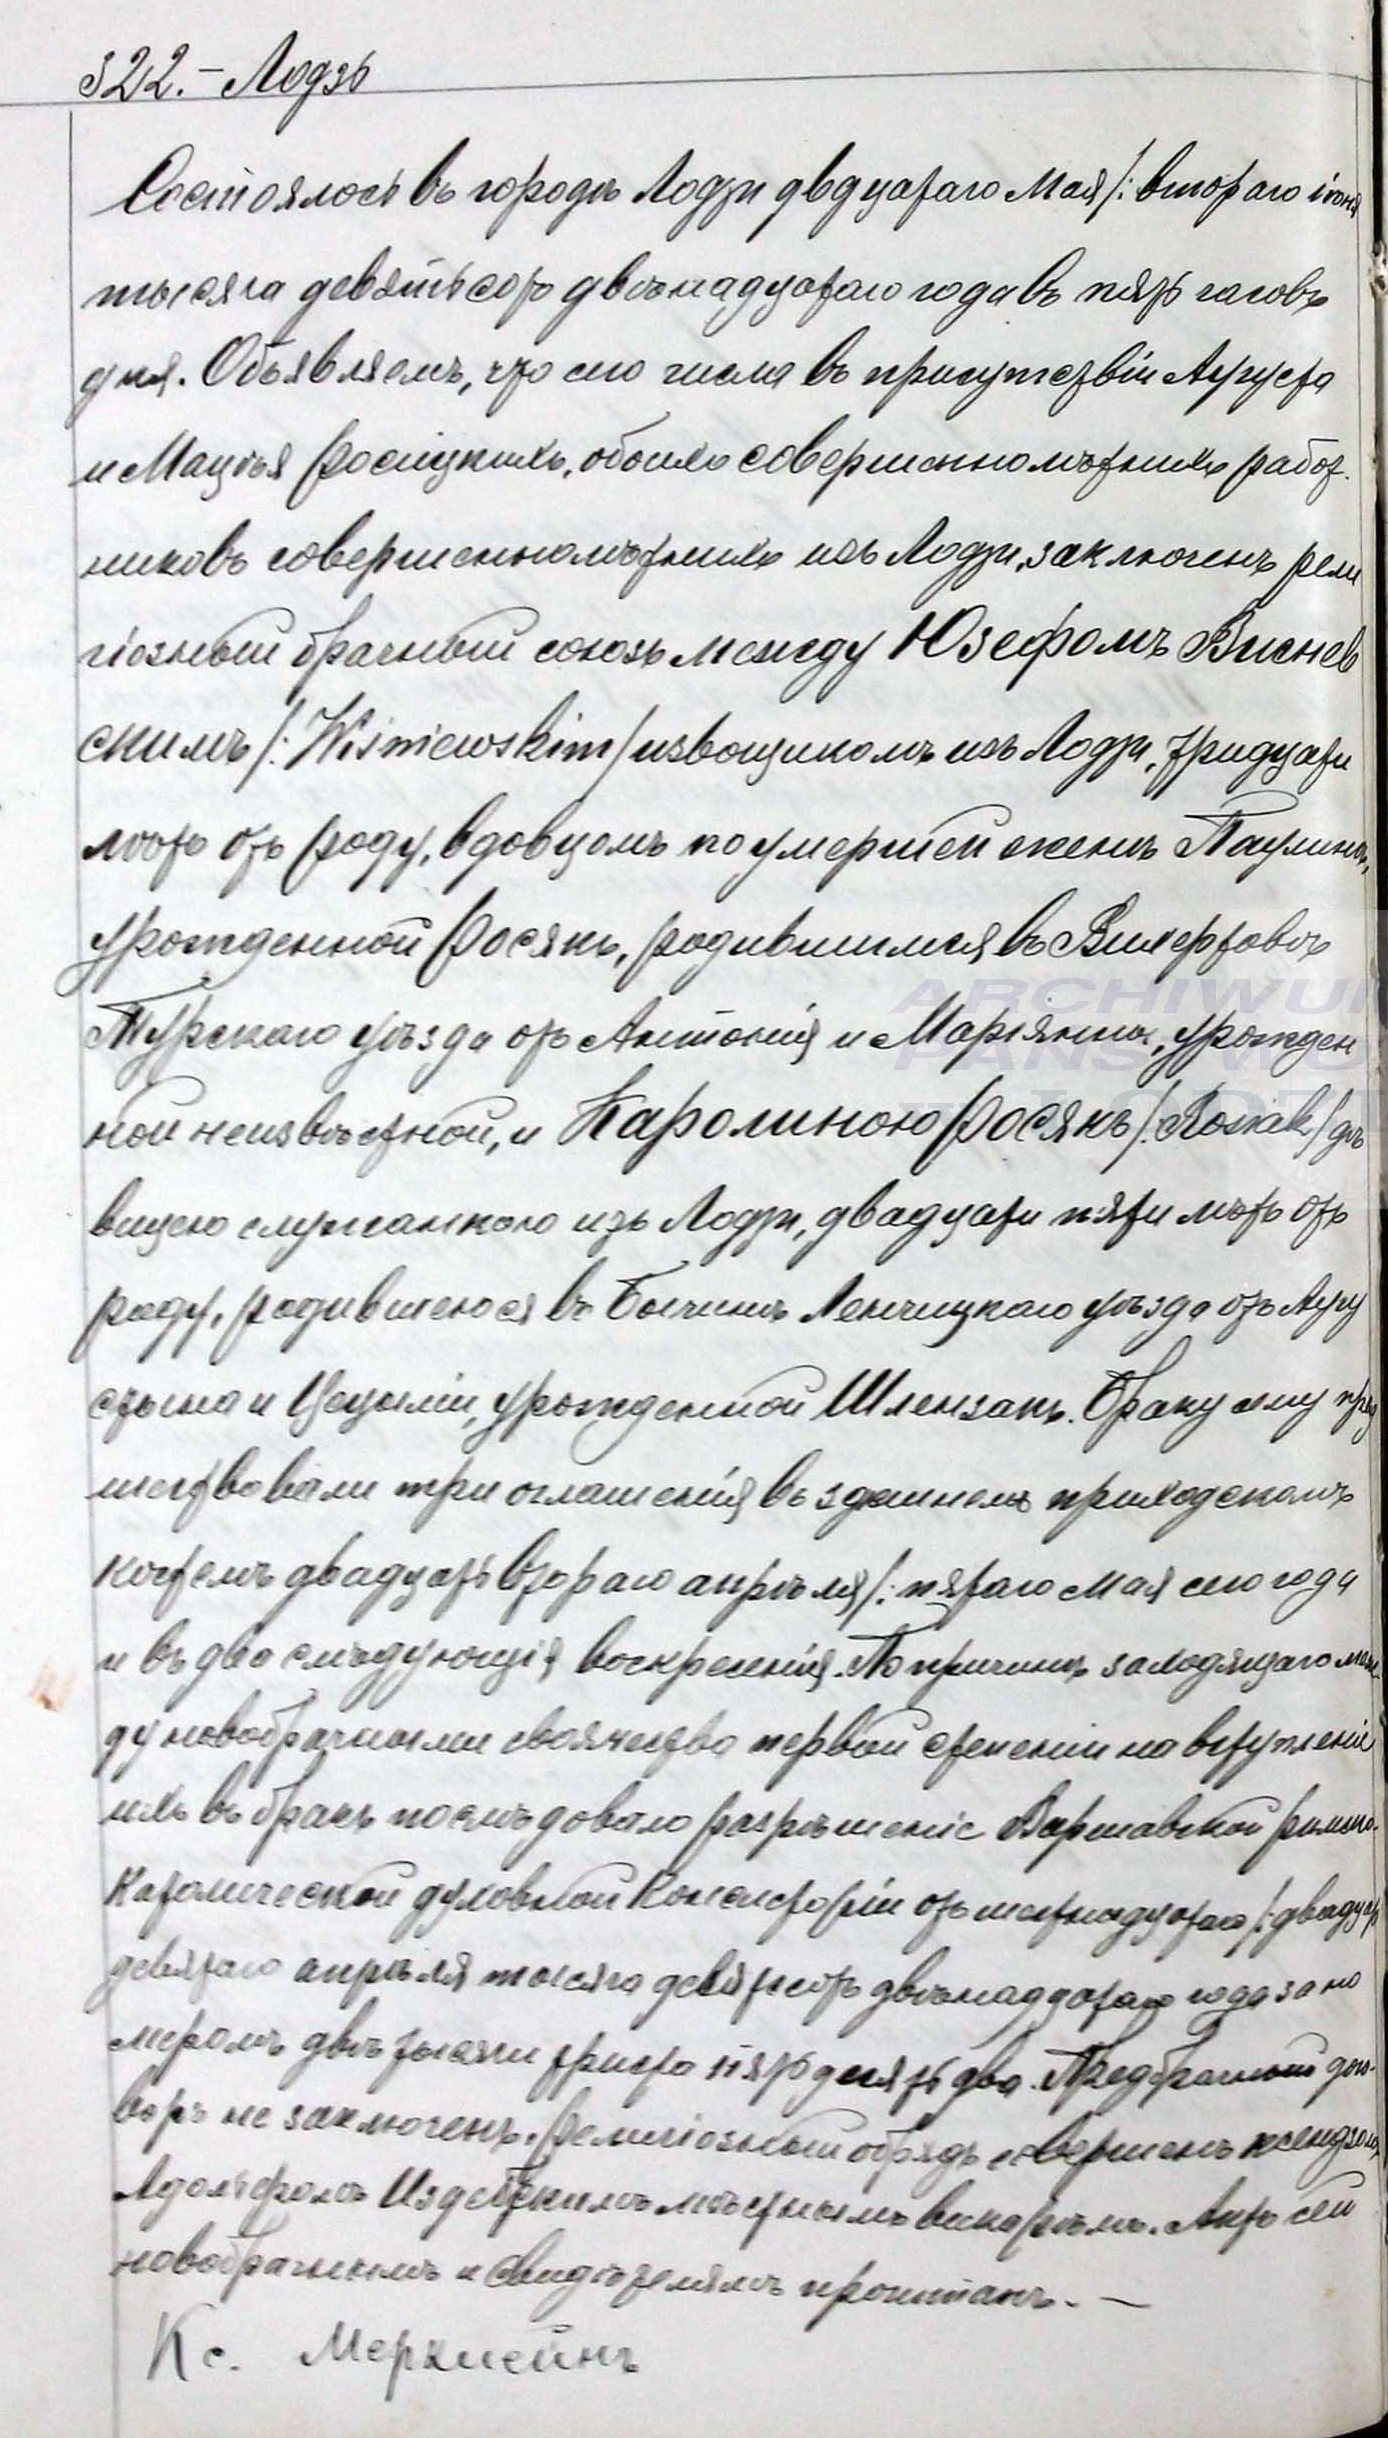 322. – Лодзь
Состоялось въ городѣ Лодзи двдцатаго Мая /: втораго іюня
тысяча девятьсотъ двѣнадцатаго года въ пять часовъ
дня. Объявляемъ, что сего числа въ присутствіи Августа
и Мацѣя Росяцкихъ, обоихъ совершеннолѣтнихъ работ.
никовъ совершеннолѣтнихъ изъ Лодзи, заключенъ рели
гіозный брачный союзъ между Юзефомъ Виснев
скимъ /: Wiśniewskim / извощикомъ изъ Лодзи, тридцати
лѣтъ отъ роду, вдовцомъ по умершей женѣ Паулинѣ,
урожденной Росякъ, родившимся въ Вилертовѣ
Турскаго уѣзда отъ Антонія и Маріянны, урожден
ной неизвѣстной, и Каролиною Росякъ /: Rosiak / дѣ
вицею служанкою изъ Лодзи, двадцати пяти лѣтъ отъ
роду, родившеюся въ Бычинѣ Ленчицкаго уѣзда отъ Авгу
стына и Цецыліи, урожденной Шлензакъ. Браку сему пред
шествовали три оглашенія въ здѣшнемъ приходскомъ
костелѣ двадцать втораго апрѣля /: пятаго Мая сего года
и въ два слѣдующія воскресенія. По причинѣ заходящаго меж
ду новобрачными своячества первой степени на вступленіе
ихъ въ бракъ послѣдовало разрѣшеніе Варшавской римско-
католической духовной Консисторіи отъ шестнадцатаго /: двадцать
девятаго апрѣля тысяча девятьсотъ двѣнадцатаго года за но
меромъ двѣ тысячи триста пятьдесятъ два. Предбрачный дого-
воръ не заключенъ. Религіозный обрядъ совершенъ ксендзомъ
Адольфомъ Издебскимъ мѣстнымъ викаріемъ. Актъ сей
новобрачнымъ и свидѣтелямъ прочитанъ. –
Кс. Мерклейнъ
ARCHIWUM
PAŃSTWO
w ŁODZI